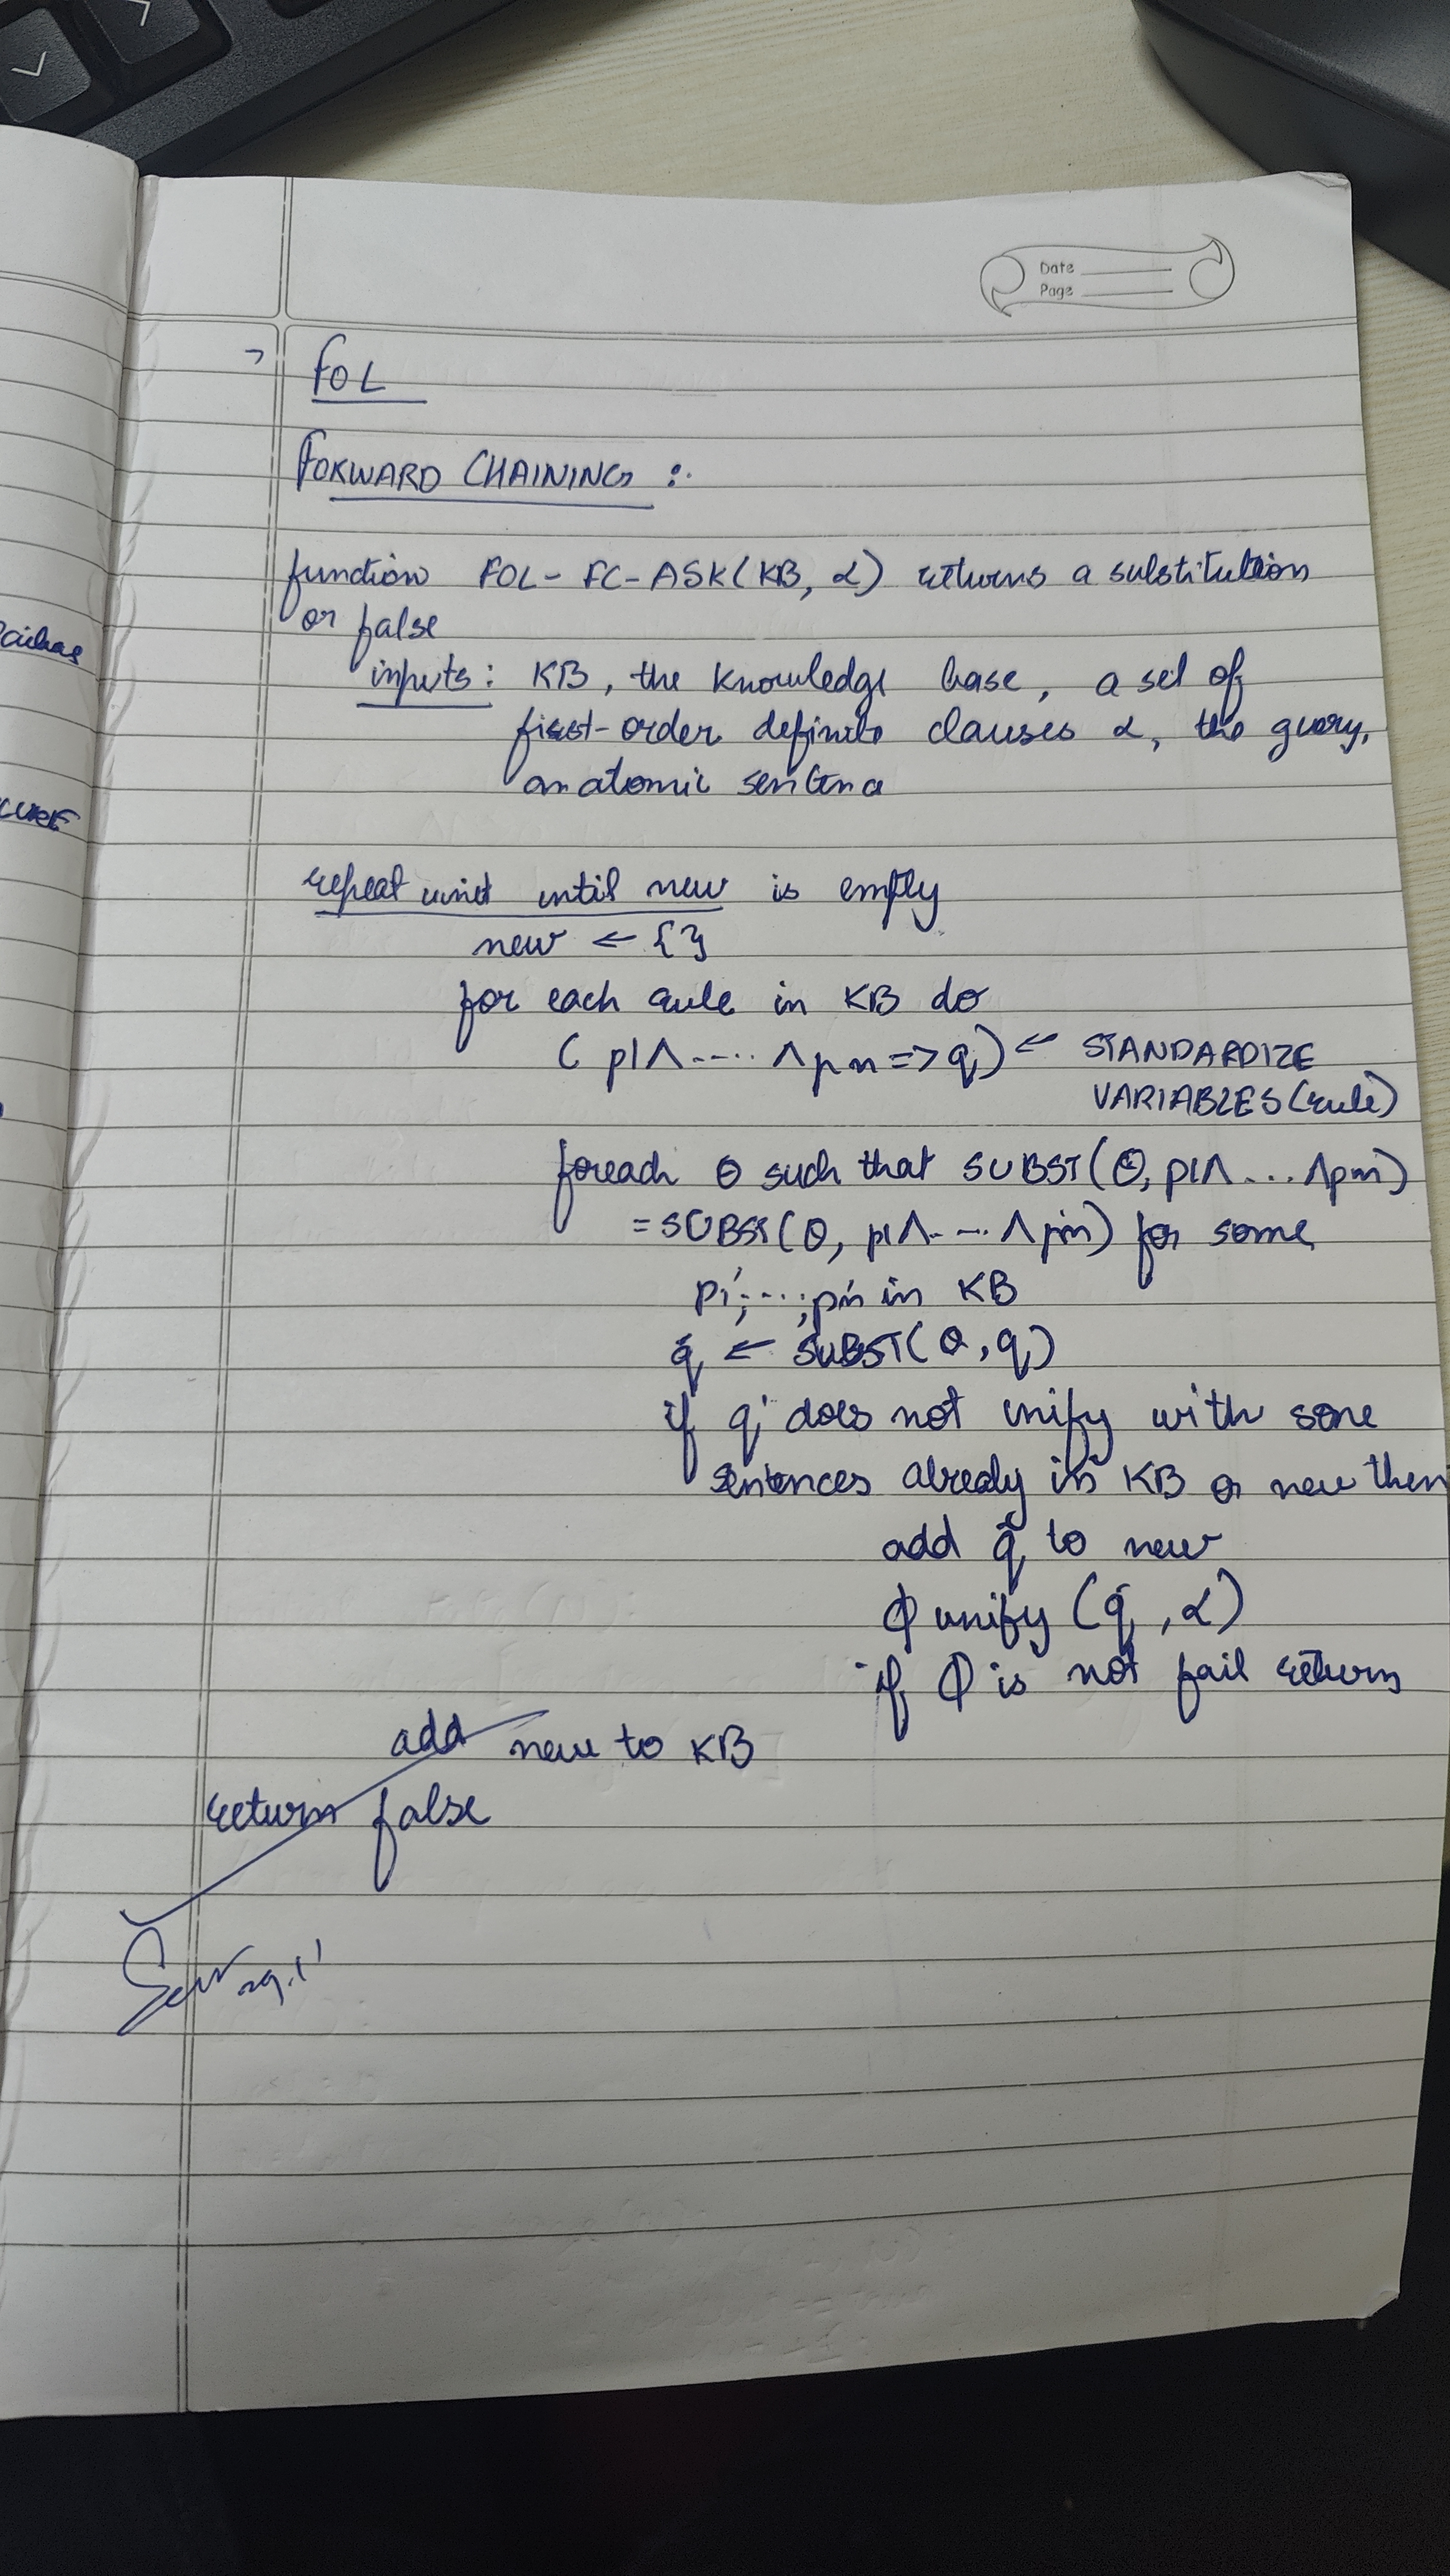 Date
Page
FOL
FORWARD CHAINING :.
function FOL-FC-ASK(KB, α) returns a substitution
or false
inputs: KB, the knowledge base, a set of
first-order definite clauses α, the query,
an atomic sentence
repeat until new is empty
new ← {}
for each rule in KB do
( p1 ∧ ..... ∧ pn => q) ← STANDARDIZE
VARIABLES(rule)
foreach θ such that SUBST(θ, p1∧ ... ∧pn)
= SUBST(θ, p1∧ .... ∧ p'n) for some
p1', ..., pn' in KB
q' ← SUBST(θ, q)
if q' does not unify with some
sentences already in KB or new then
add q' to new
Φ unify (q', α)
if Φ is not fail return
add new to KB
return false
CURE